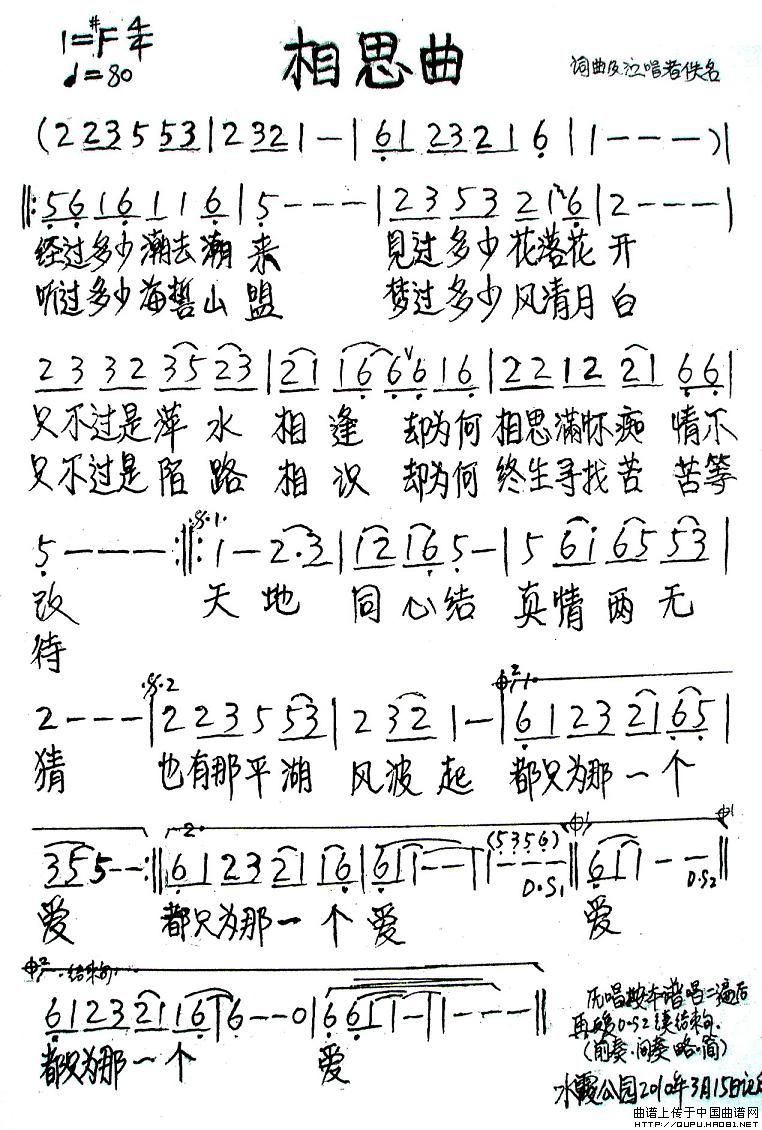 1=#F 4/4
♩=80
相思曲
词曲及泣唱者佚名
(2 2 3 5 5 3 | 2 3 2 1 — | 6 1 2 3 2 1 6 | 1 — — — ) |
||: 5 6 1 6 1 1 6 | 5 — — — | 2 3 5 3 2 1 6 | 2 — — — |
经过多少潮去潮来 見过多少花落花开
听过多少海誓山盟 梦过多少风清月白
2 3 3 2 3 5 2 3 | 2 1 1 6 6 6 1 6 | 2 2 1 2 2 1 6 6 |
只不过是萍水相逢 却为何相思满怀痴情不
只不过是陌路相识 却为何终生寻找苦苦等
5 — — — :||: 1 — 2·3 | 1 2 1 6 5 — | 5 6 i 6 5 5 3 |
改 天地同心结 真情两无
待
2 — — — | 2 2 3 5 5 3 | 2 3 2 1 — | 6 1 2 3 2 1 6 5 |
猜 也有那平湖风波起 都只为那一个
3 5 5 — — :|| 6 1 2 3 2 1 1 6 | 6 1 1 — — | 1 — — — (5 3 5 6) D.S1 || 6 1 1 — — D.S2 ||
爱 都只为那一个爱 爱
结束句
6 1 2 3 2 1 1 6 | 6 — — 0 | 6 6 1 1 — 1 — | 1 — — — ||
都只为那一个 爱
唱按本谱唱二遍后
再 D.S2 结束句.
(前奏.间奏略.简)
水霞公园2010年3月15日记
曲谱上传于中国曲谱网
HTTP://QUPU.HAO81.NET